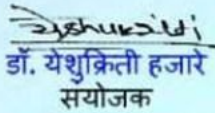 डॉ. येशुक्रिती हजारे
सयोजक